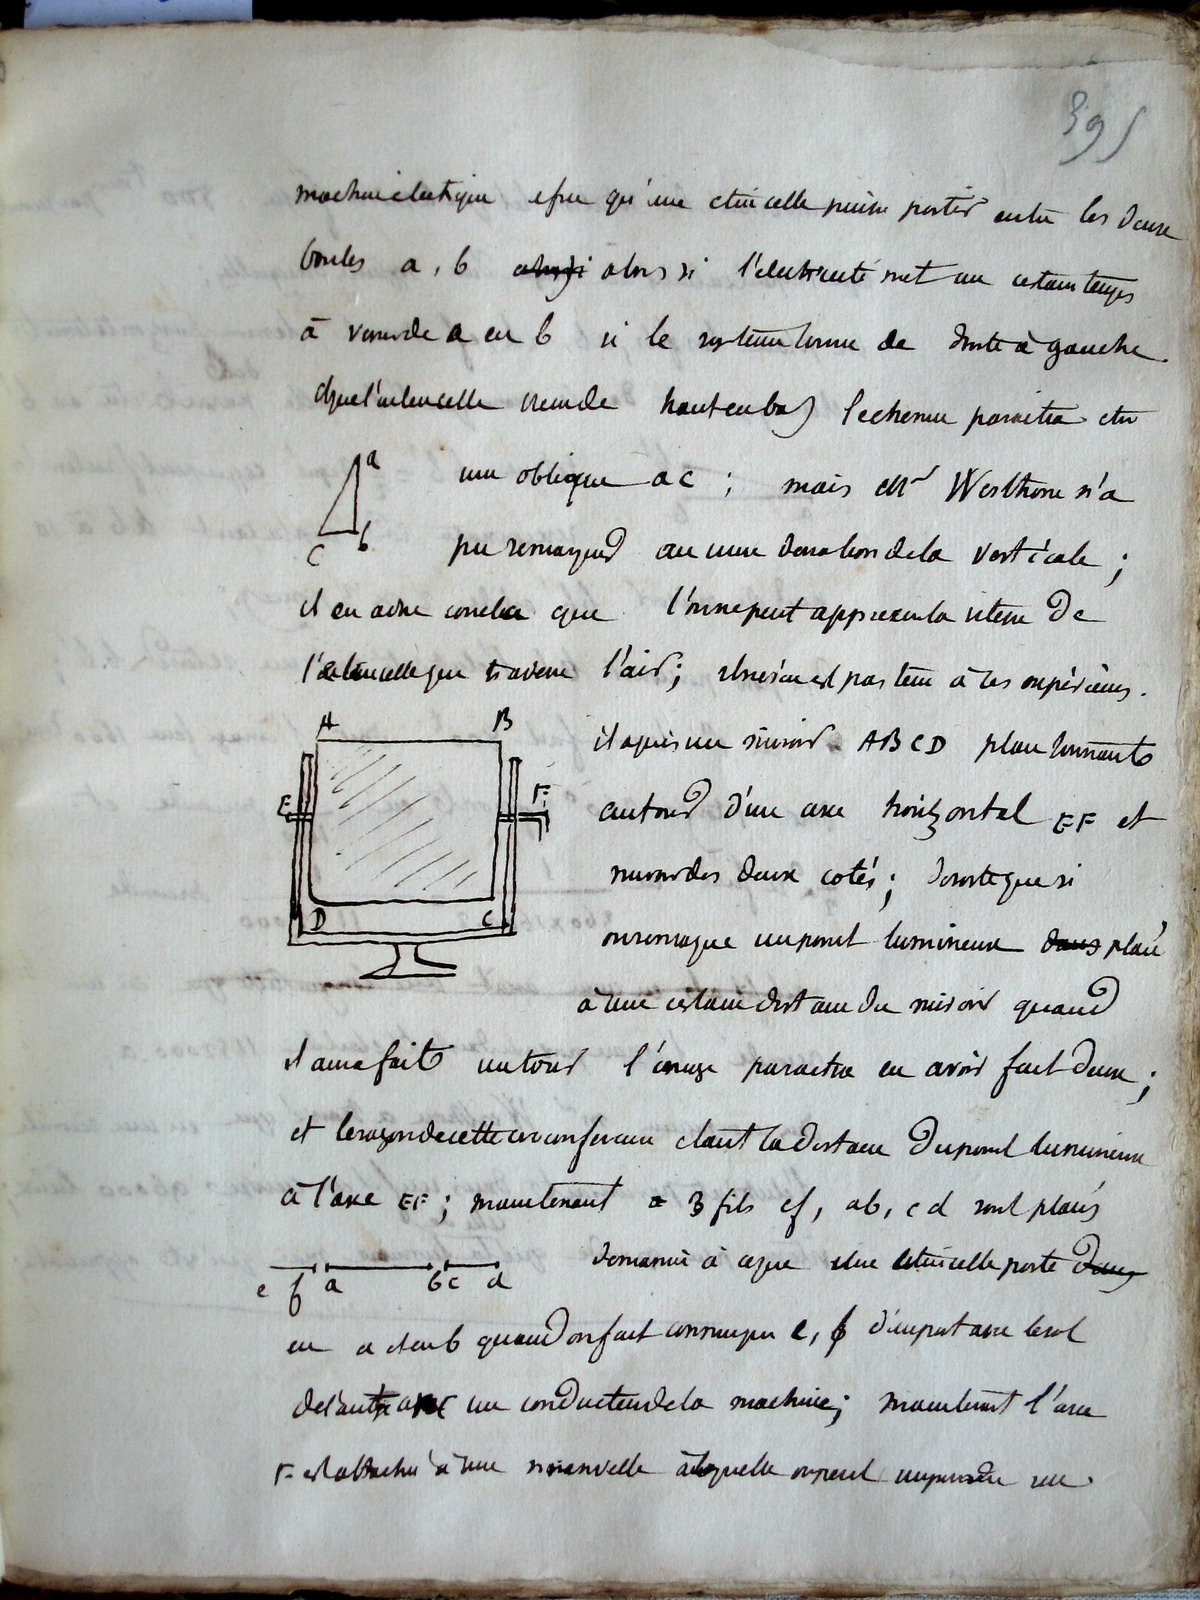 395
machine électrique afin qu'une étincelle puisse partir entre les deux
boules a, b alors si l'électricité met un certain temps
à venir de a en b si le système tourne de droite à gauche
et que l'étincelle vienne de haut en bas le chemin paraîtra être
a
une oblique ac ; mais Mr Westhone n'a
c b
pu remarquer aucune déviation de la verticale ;
il en a donc conclu que l'on ne peut apprécier la vitesse de
l'étincelle qui traverse l'air ; il ne s'en est pas tenu à ces expériences.
A B
il a pris un miroir ABCD plan tournant
E F
autour d'un axe horizontal EF et
miroir des deux cotés ; de sorte que si
D C
on remarque un point lumineux dans placé
à une certaine distance du miroir quand
il aura fait un tour l'image paraitra en avoir fait deux ;
et le rayon de cette circonférence étant la distance du point lumineux
à l'axe EF ; maintenant 3 fils ef, ab, cd sont placés
de manière à ce que une étincelle parte dans
e f a b c d
en a et en b quand on fait communiquer e, f d'une part avec le sol
de l'autre avec un conducteur de la machine ; maintenant l'axe
F est attaché à une manivelle à laquelle on peut imprimer un